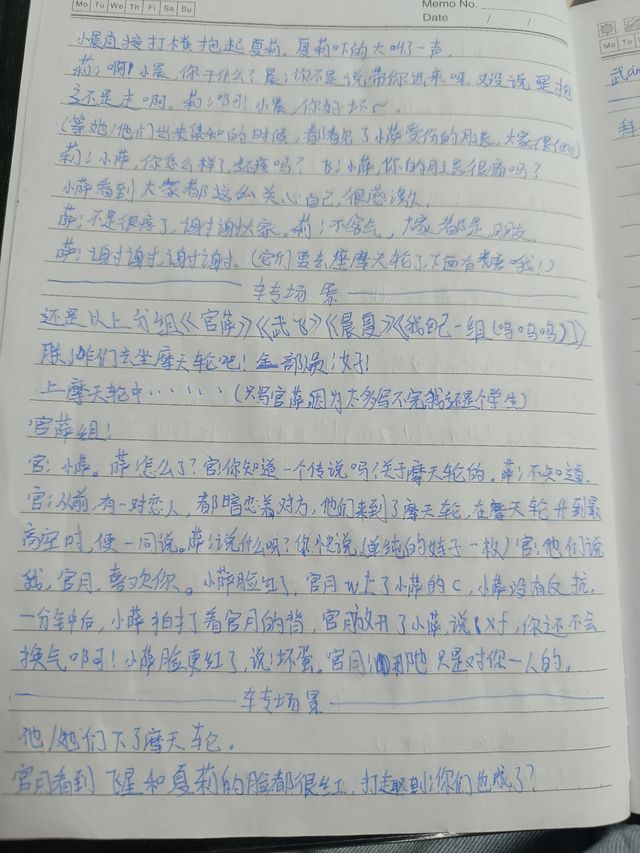 Mo Tu We Th Fr Sa Su
Memo No.
Date / /
Mo Tu W
小晨直接打横抱起夏莉。夏莉吓的大叫了一声.
莉:啊!小晨,你干什么?晨:你不是说带你出来呀.又没说要抱
这不是走啊。莉:啊!小晨,你好坏~.
(等她/他们出去集合的时候,都看见了小萨受伤的脚,大家很
莉:小萨,你怎么样了,好疼吗?飞:小萨,你的脚是很痛吗?
小萨看到大家都这么关心自己,很感激.
萨:不是很疼了,谢谢大家.莉:不客气,大家都是朋友.
萨:谢谢谢谢谢谢.(它们要去座摩天轮了,下面有表白哦!)
转场景
还是以上分组《宫萨》《武飞》《晨夏》《我自己一组(呜呜呜)》
咱们去坐摩天轮吧!全部员:好!
上摩天轮中······(只写宫萨因为太多写不完我还是个学生)
宫萨组:
宫:小萨。萨:怎么了?宫:你知道一个传说吗?关于摩天轮的.萨:不知道.
宫:从前,有一对恋人,都暗恋着对方,他们来到了摩天轮,在摩天轮升到最
高空时,便一同说。萨:说什么呀?你快说(单纯的娃子一枚)宫:他们说
我,宫月,喜欢你。小萨脸红了,宫月w上了小萨的c,小萨没有反抗.
一分钟后,小萨拍打着宫月的背,宫月放开了小萨,说:xf,你还不会
换气啊!小萨脸更红了,说:坏蛋.宫月:那也只是对你一人的.
转场景
他/她们下了摩天轮.
宫月看到飞星和夏莉的脸都很红,打趣到:你们也成了?
武